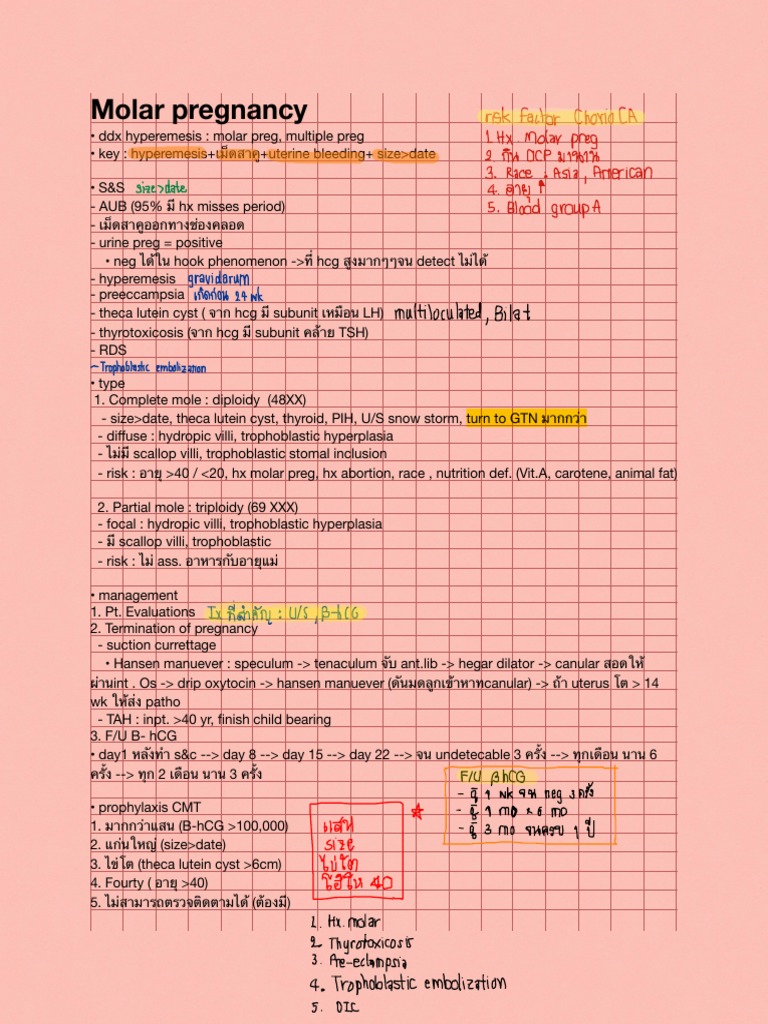 Molar pregnancy
• ddx hyperemesis : molar preg, multiple preg
• key : hyperemesis+เม็ดสาคู+uterine bleeding+ size>date
risk factor Chorio CA
1. Hx. Molar preg
2. กิน OCP มานาน
3. Race : Asia, American
4. อายุ ↑
5. Blood group A
• S&S size>date
- AUB (95% มี hx misses period)
- เม็ดสาคูออกทางช่องคลอด
- urine preg = positive
• neg ได้ใน hook phenomenon ->ที่ hcg สูงมากๆๆจน detect ไม่ได้
- hyperemesis gravidarum
- preeccampsia เกิดก่อน 24 wk
- theca lutein cyst ( จาก hcg มี subunit เหมือน LH) multiloculated, Bilat
- thyrotoxicosis (จาก hcg มี subunit คล้าย TSH)
- RDS
~ Trophoblastic embolization
• type
1. Complete mole : diploidy (48XX)
- size>date, theca lutein cyst, thyroid, PIH, U/S snow storm, turn to GTN มากกว่า
- diffuse : hydropic villi, trophoblastic hyperplasia
- ไม่มี scallop villi, trophoblastic stomal inclusion
- risk : อายุ >40 / <20, hx molar preg, hx abortion, race , nutrition def. (Vit.A, carotene, animal fat)
2. Partial mole : triploidy (69 XXX)
- focal : hydropic villi, trophoblastic hyperplasia
- มี scallop villi, trophoblastic
- risk : ไม่ ass. อาหารกับอายุแม่
• management
1. Pt. Evaluations Ix ที่สำคัญ : U/S , β-hCG
2. Termination of pregnancy
- suction currettage
• Hansen manuever : speculum --> tenaculum จับ ant.lib -> hegar dilator -> canular สอดให้
ผ่านint . Os -> drip oxytocin -> hansen manuever (ดันมดลูกเข้าหาทcanular) -> ถ้า uterus โต > 14
wk ให้ส่ง patho
- TAH : inpt. >40 yr, finish child bearing
3. F/U B- hCG
• day1 หลังทำ s&c --> day 8 --> day 15 --> day 22 --> จน undetecable 3 ครั้ง --> ทุกเดือน นาน 6
ครั้ง --> ทุก 2 เดือน นาน 3 ครั้ง
F/U βhCG
- ทุ 1 wk จน neg 3 ครั้ง
- ทุ 1 mo x 6 mo
- ทุ 3 mo จนครบ 1 ปี
• prophylaxis CMT
1. มากกว่าแสน (B-hCG >100,000)
2. แก่นใหญ่ (size>date)
3. ไข่โต (theca lutein cyst >6cm)
4. Fourty ( อายุ >40)
5. ไม่สามารถตรวจติดตามได้ (ต้องมี)
แสน
size
ไข่โต
40
1. Hx. molar
2. Thyrotoxicosis
3. Pre-eclampsia
4. Trophoblastic embolization
5. DIC